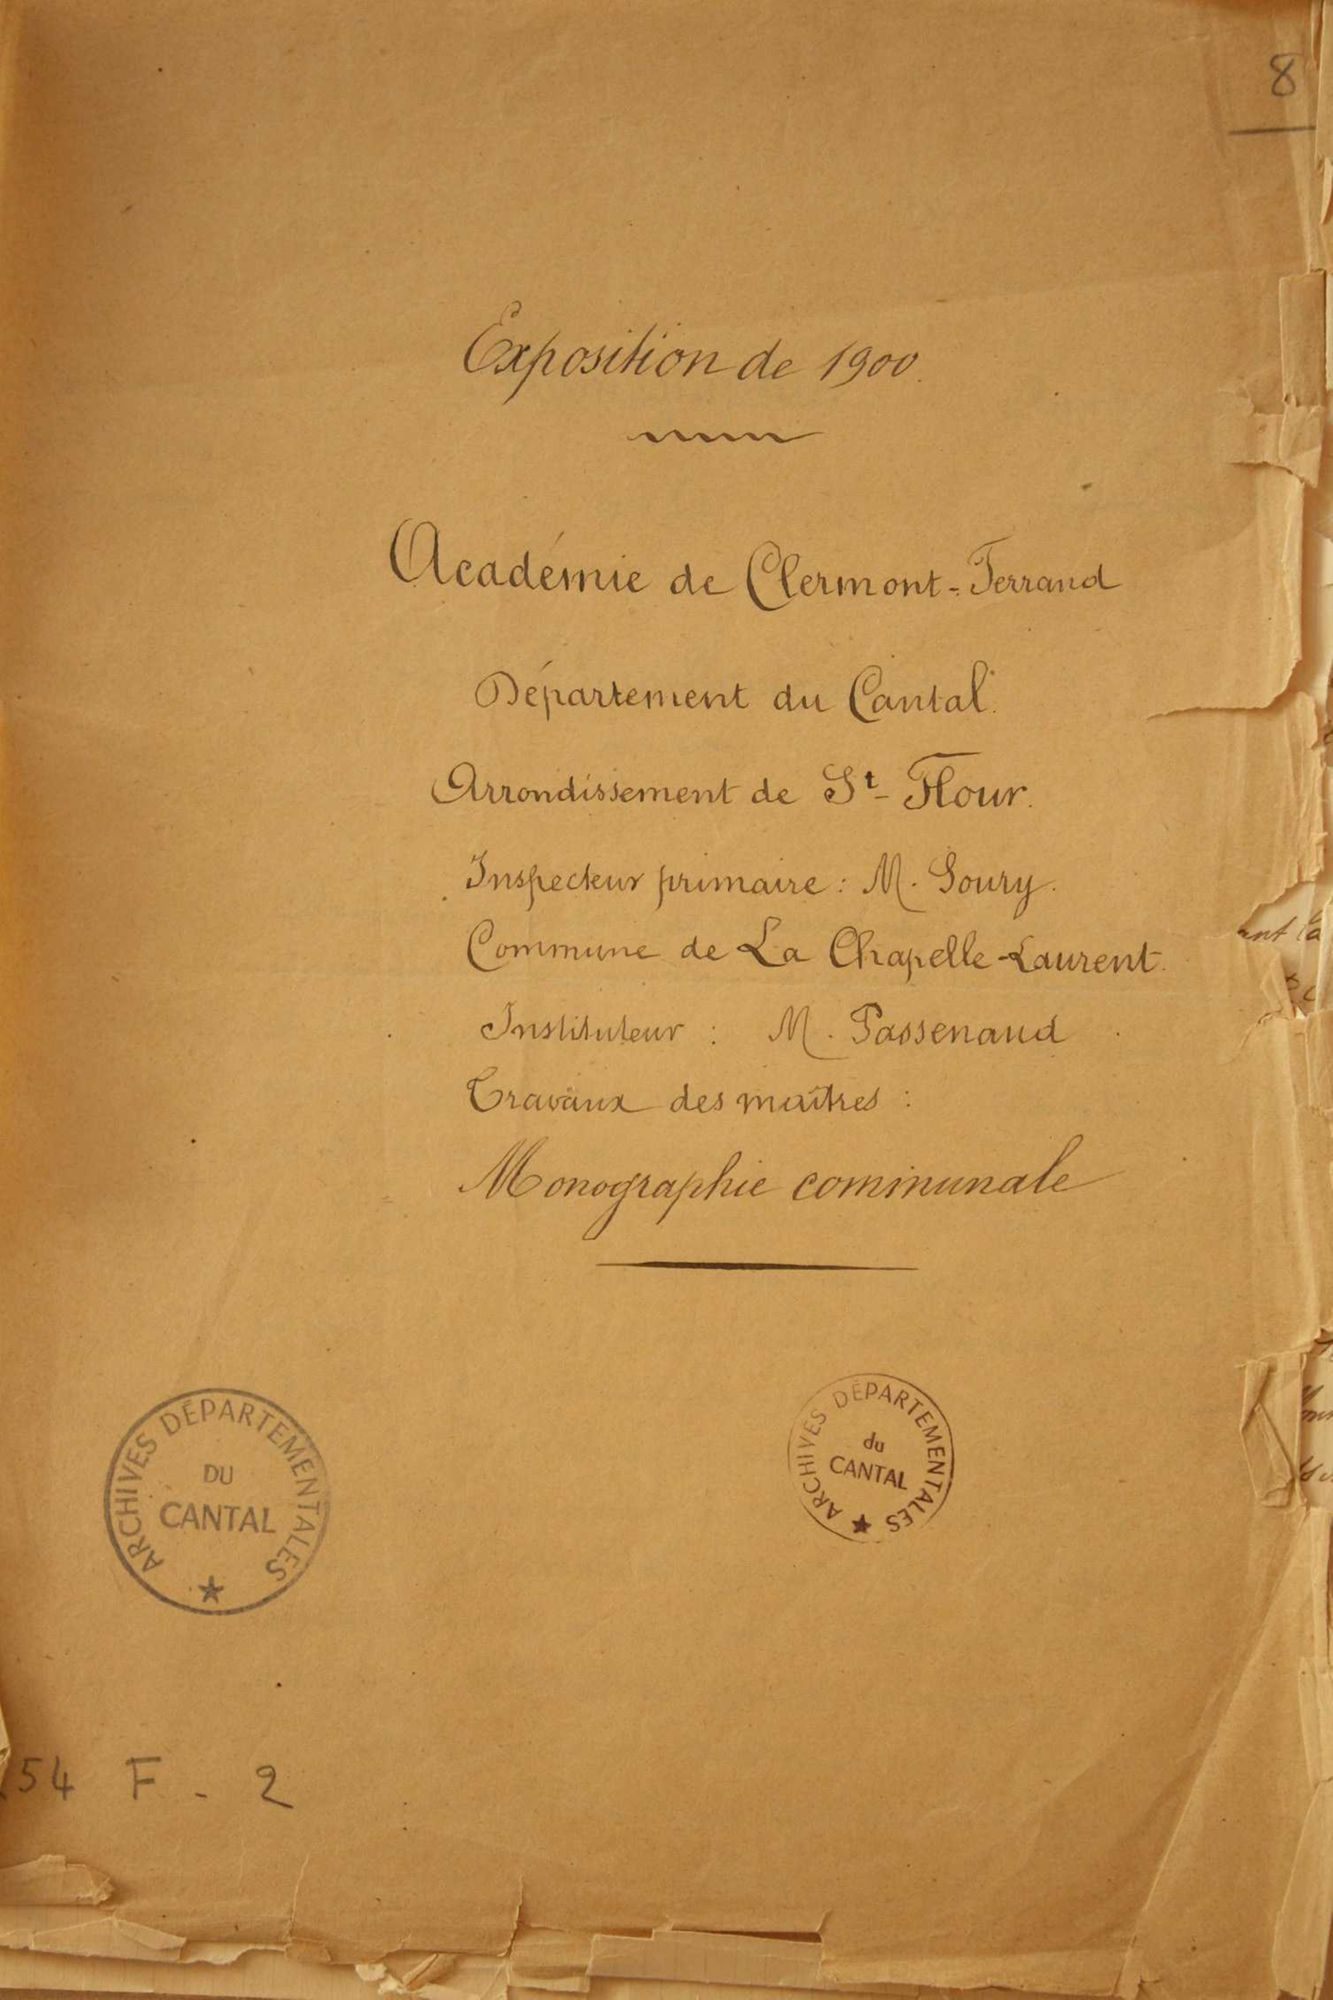 8
Exposition de 1900.
Académie de Clermont-Ferrand
Département du Cantal.
Arrondissement de St-Flour.
Inspecteur primaire : M. Soury.
Commune de La Chapelle-Laurent.
Instituteur : M. Passenaud
Travaux des maîtres :
Monographie communale
ARCHIVES DÉPARTEMENTALES
DU
CANTAL
ARCHIVES DÉPARTEMENTALES
du
CANTAL
54 F - 2